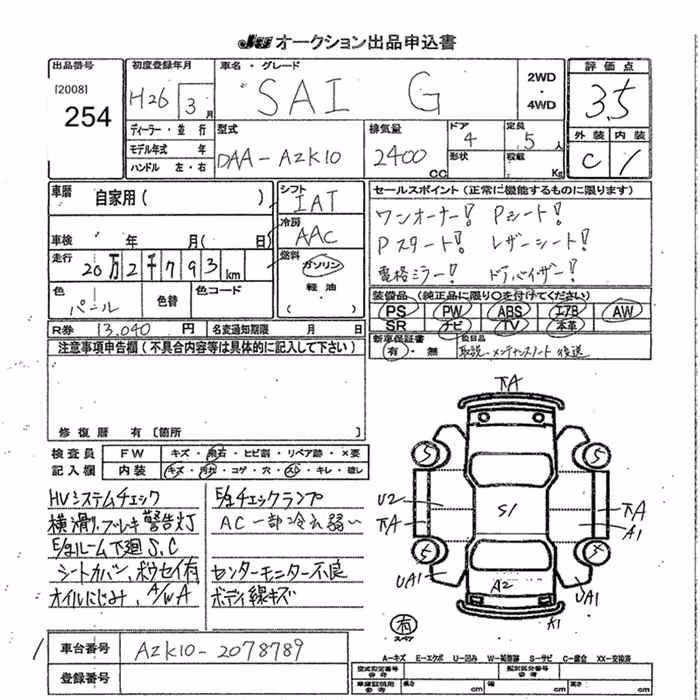 JU オークション出品申込書
出品番号 初度登録年月 車名・グレード 2WD・4WD 評価点
[2008]
254
H26 3月
SAI G
3.5
ディーラー・並行
モデル年式 年
ハンドル 左・右
型式 排気量 ドア 定員 外装 内装
DAA-AZK10 2400CC 4 5人 C 1
形状 積載 Kg
車暦 自家用( ) シフト IAT セールスポイント(正常に機能するものに限ります)
冷房 AAC
ワンオーナー! Pシート!
車検 年 月( 日) Pスタート! レザーシート!
走行 20万2千793km 燃料 ガソリン
軽油
( )
電格ミラー! ドアバイザー!
色 パール 色替 色コード
装備品(純正品に限り○を付けてください)
PS PW ABS エアB AW
SR ナビ TV 本革
R券 13,040円 名変通知期限 月 日
新車保証書 有・無
取説 メンテナンスノート 後送
注意事項申告欄(不具合内容等は具体的に記入して下さい)
修復暦 有[箇所 ]
検査員記入欄
FW キズ・飛石・ヒビ割・リペア跡・×要
内装 キズ・汚れ・コゲ・穴・スレ・キレ・壊し
HVシステムチェック E/gチェックランプ
横滑り,ブレーキ警告灯 AC一部冷え弱い
E/gルーム下廻S,C
シートカバー,ボウセイ有 センターモニター不良
オイルにじみ、A/WA ボディ線キズ
下A
5 5
U2 S1 下A
下A A1
5 5
UA1 A2 UA1
A1
有
スペア
車台番号 AZK10-2078789
登録番号
A-キズ E-エクボ U-凹み W-補修跡 S-サビ C-腐食 XX-交換済
型式指定番号 参考 類別区分番号 参考
長さ cm 幅 cm 高さ cm